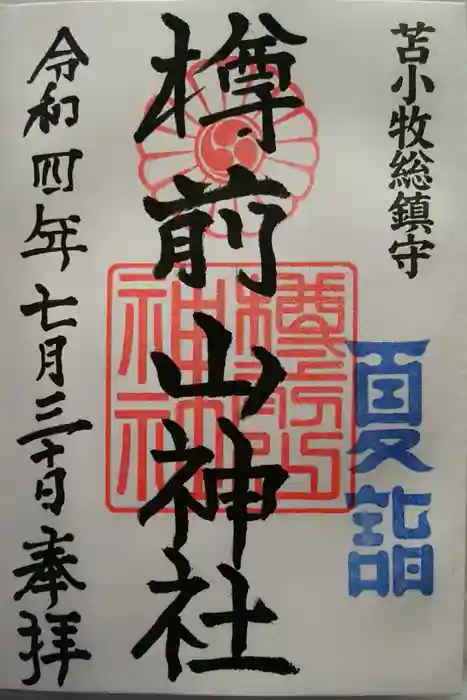 苫小牧総鎮守
夏詣
樽前山神社
樽前山神社
令和四年七月三十日奉拝